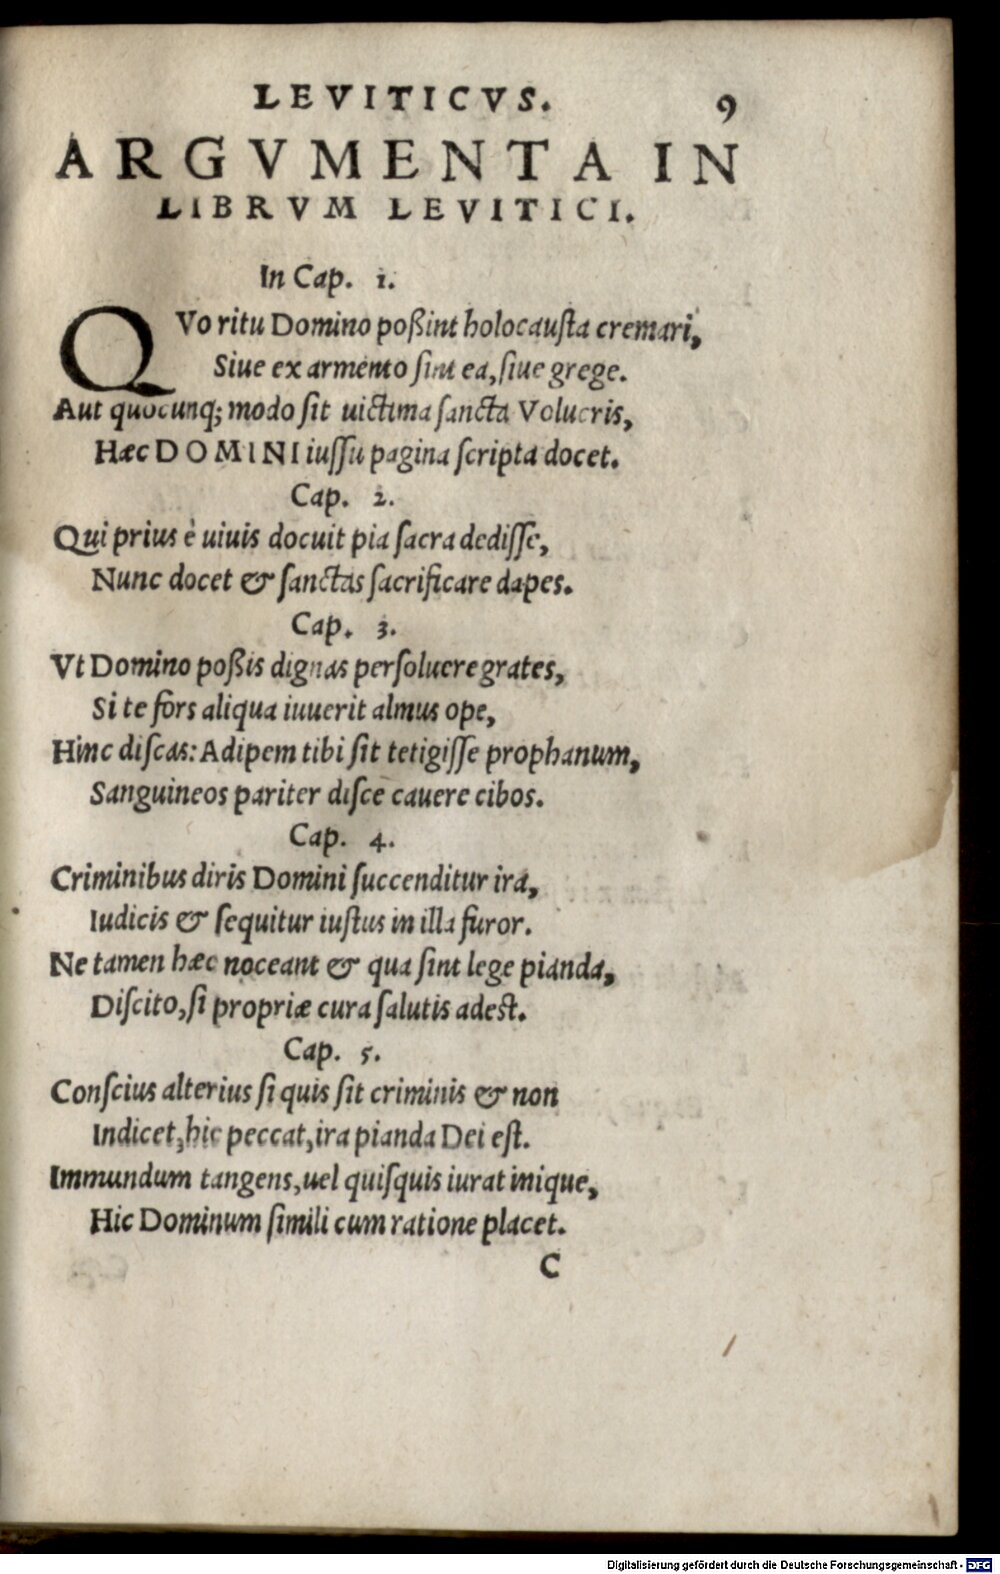 LEVITICVS. 9
ARGVMENTA IN
LIBRVM LEVITICI.
In Cap. 1.
QVo ritu Domino poßint holocauſta cremari,
Siue ex armento ſint ea, ſiue grege.
Aut quocunq; modo ſit uictima ſancta Volucris,
Hæc DOMINI iuſſu pagina ſcripta docet.
Cap. 2.
Qui prius è uiuis docuit pia ſacra dediſſe,
Nunc docet & ſanctas ſacrificare dapes.
Cap. 3.
Vt Domino poßis dignas perſoluere grates,
Si te fors aliqua iuuerit almus ope,
Hinc diſcas: Adipem tibi ſit tetigiſſe prophanum,
Sanguineos pariter diſce cauere cibos.
Cap. 4.
Criminibus diris Domini ſuccenditur ira,
Iudicis & ſequitur iuſtus in illa furor.
Ne tamen hæc noceant & qua ſint lege pianda,
Diſcito, ſi propriæ cura ſalutis adeſt.
Cap. 5.
Conſcius alterius ſi quis ſit criminis & non
Indicet, hic peccat, ira pianda Dei eſt.
Immundum tangens, uel quiſquis iurat inique,
Hic Dominum ſimili cum ratione placet.
C
Digitalisierung gefördert durch die Deutsche Forschungsgemeinschaft - DFG